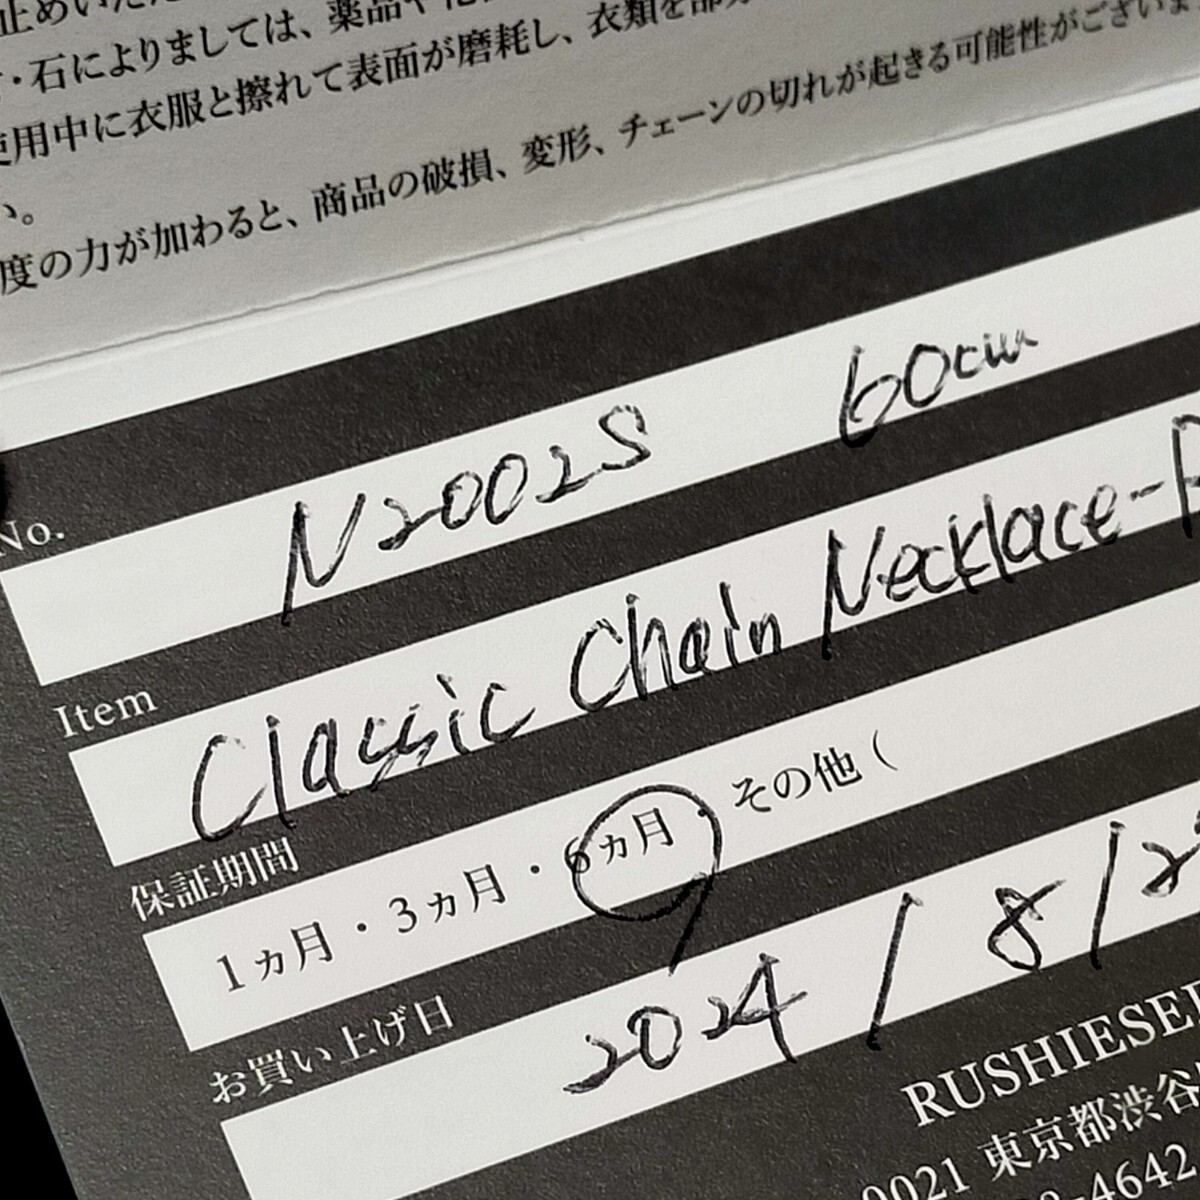 止めいただ
・石によりましては、薬品や化
使用中に衣服と擦れて表面が磨耗し、衣類を部分
い。
度の力が加わると、商品の破損、変形、チェーンの切れが起きる可能性がございま
No.
N2002S 60cm
Item
Classic Chain Necklace-
保証期間
1ヵ月・3ヵ月・6ヵ月・その他(
お買い上げ日
2024/8/2
RUSHIESE
0021 東京都渋谷
-4642